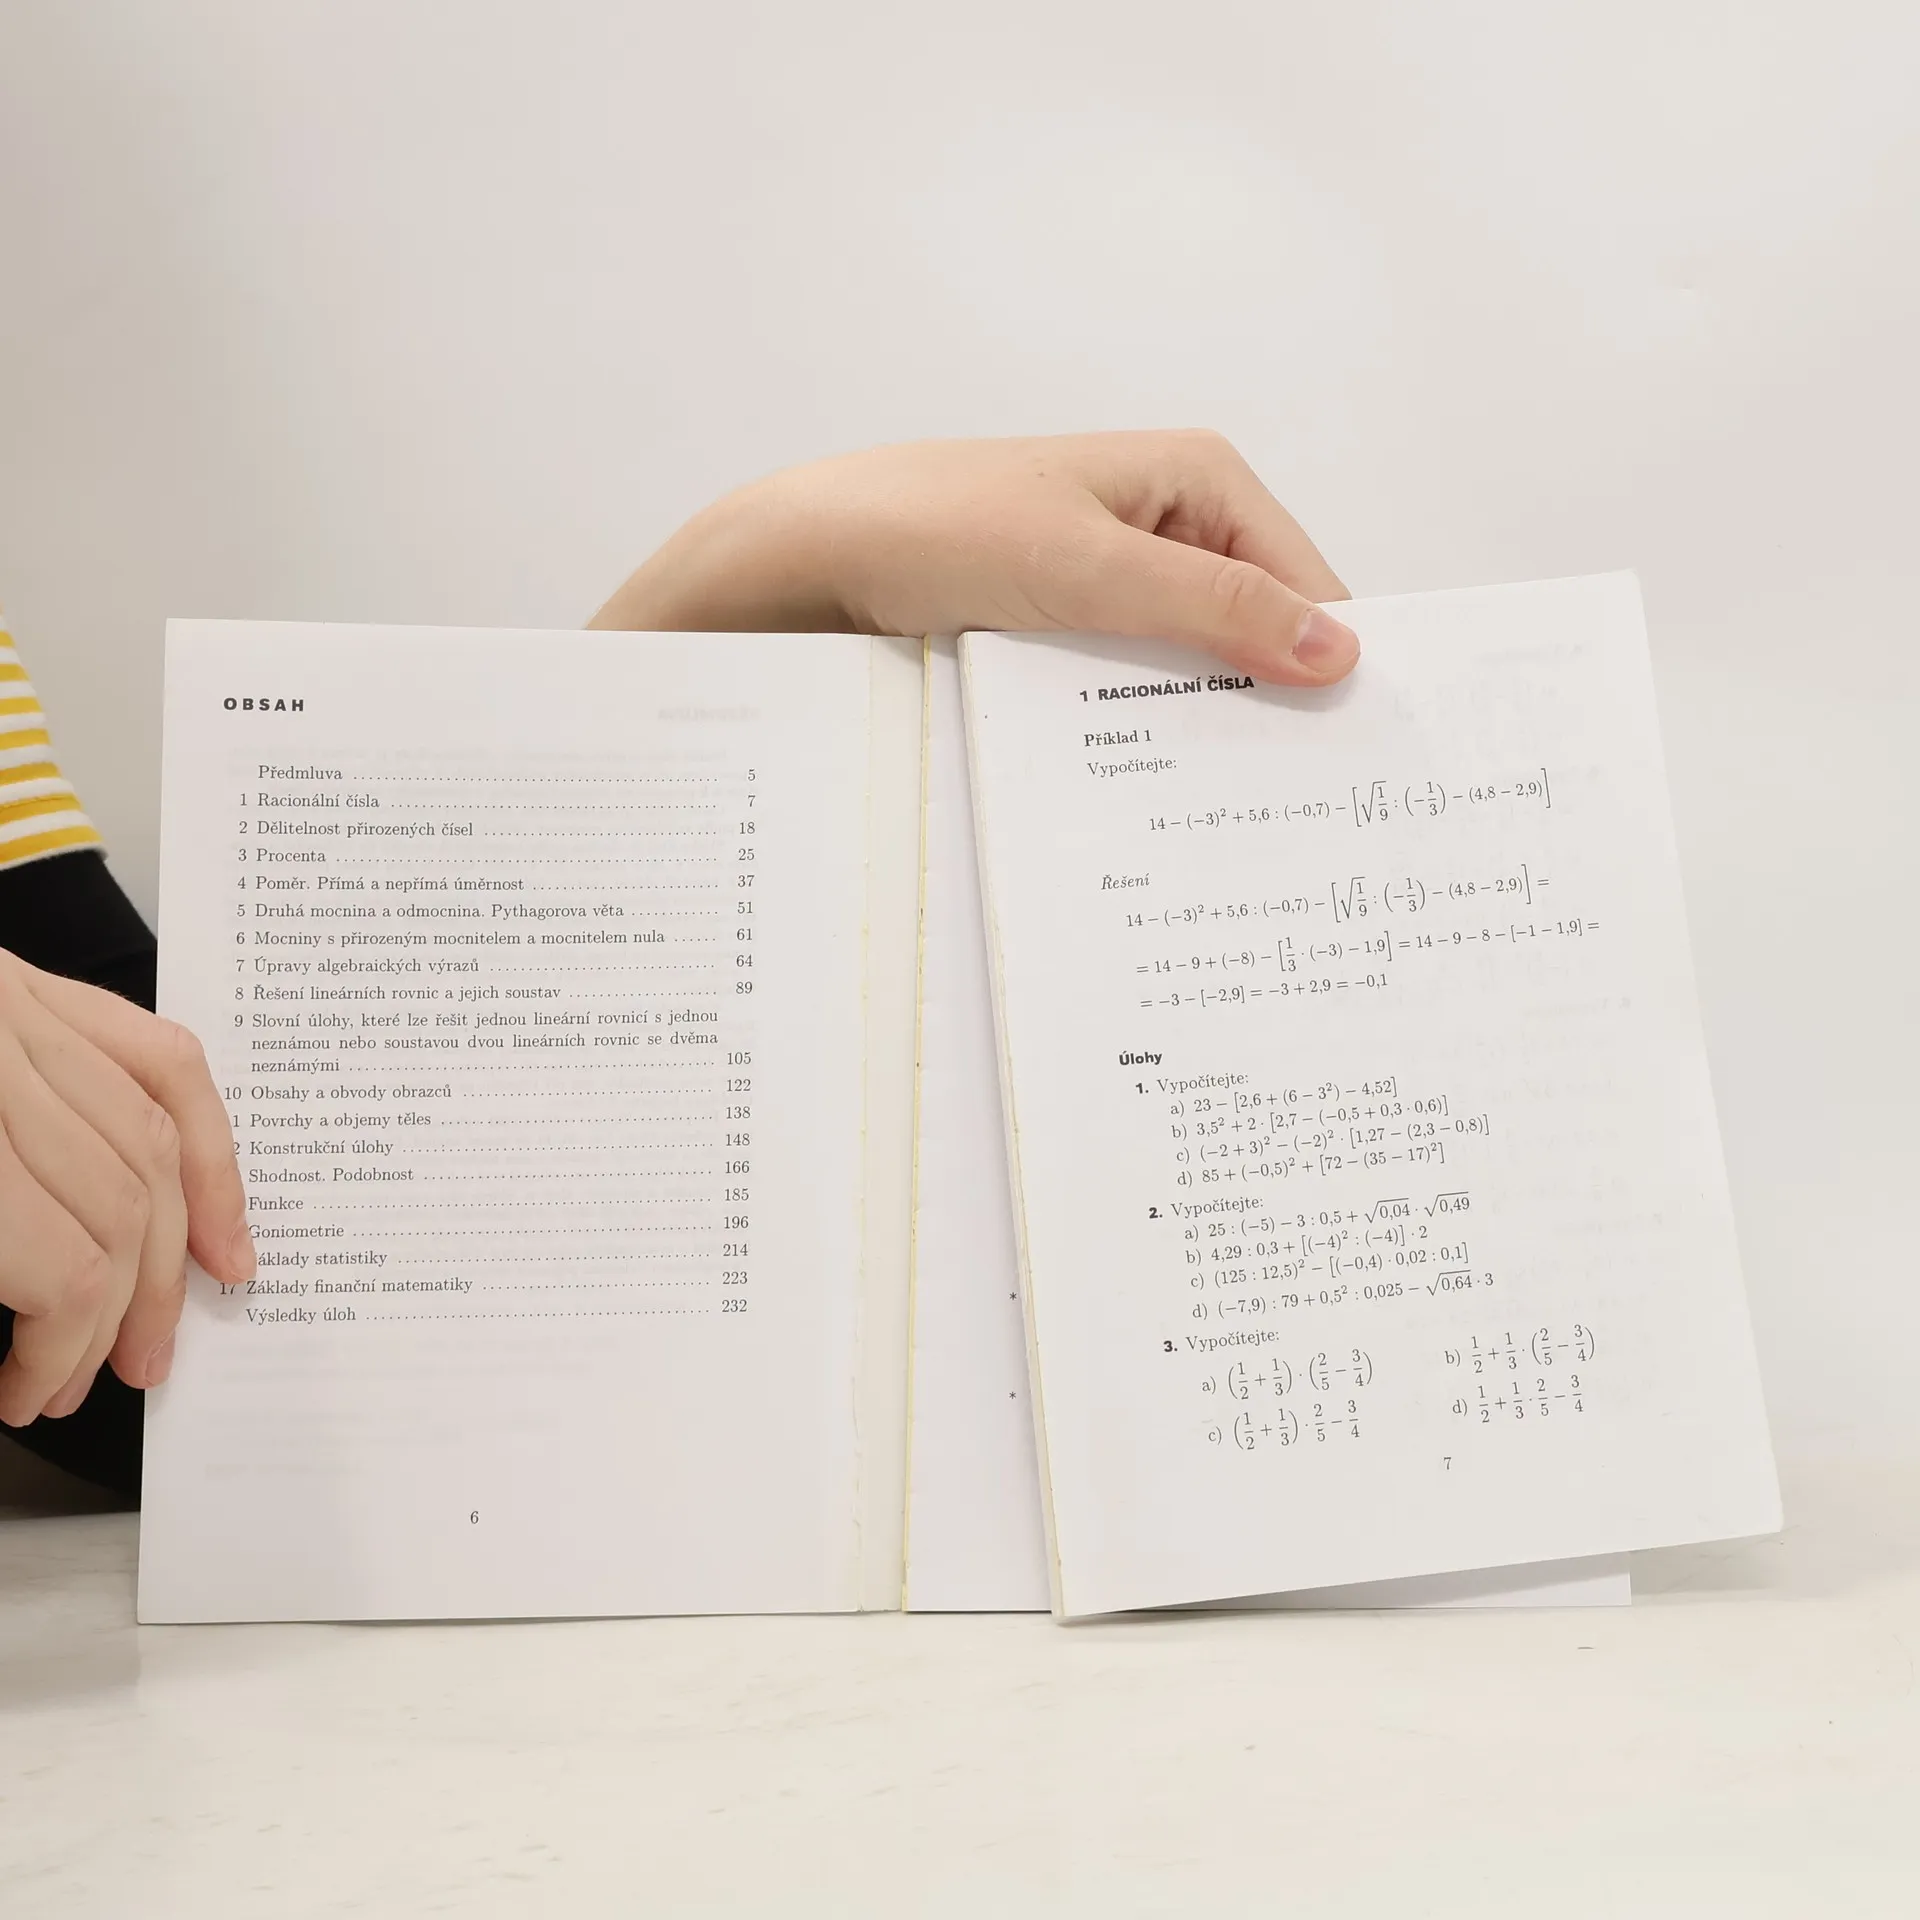 OBSAH
Předmluva ........ 5
1 Racionální čísla ........ 7
2 Dělitelnost přirozených čísel ........ 18
3 Procenta ........ 25
4 Poměr. Přímá a nepřímá úměrnost ........ 37
5 Druhá mocnina a odmocnina. Pythagorova věta ........ 51
6 Mocniny s přirozeným mocnitelem a mocnitelem nula ...... 61
7 Úpravy algebraických výrazů ........ 64
8 Řešení lineárních rovnic a jejich soustav ........ 89
9 Slovní úlohy, které lze řešit jednou lineární rovnicí s jednou
neznámou nebo soustavou dvou lineárních rovnic se dvěma
neznámými ........ 105
10 Obsahy a obvody obrazců ........ 122
1 Povrchy a objemy těles ........ 138
2 Konstrukční úlohy ........ 148
Shodnost. Podobnost ........ 166
Funkce ........ 185
Goniometrie ........ 196
áklady statistiky ........ 214
17 Základy finanční matematiky ........ 223
Výsledky úloh ........ 232
6
*
*
1 RACIONÁLNÍ ČÍSLA
Příklad 1
Vypočítejte:
14 − (−3)² + 5,6 : (−0,7) − [√(1/9) : (−1/3) − (4,8 − 2,9)]
Řešení
14 − (−3)² + 5,6 : (−0,7) − [√(1/9) : (−1/3) − (4,8 − 2,9)] =
= 14 − 9 + (−8) − [1/3 · (−3) − 1,9] = 14 − 9 − 8 − [−1 − 1,9] =
= −3 − [−2,9] = −3 + 2,9 = −0,1
Úlohy
1. Vypočítejte:
a) 23 − [2,6 + (6 − 3²) − 4,52]
b) 3,5² + 2 · [2,7 − (−0,5 + 0,3 · 0,6)]
c) (−2 + 3)² − (−2)² · [1,27 − (2,3 − 0,8)]
d) 85 + (−0,5)² + [72 − (35 − 17)²]
2. Vypočítejte:
a) 25 : (−5) − 3 : 0,5 + √0,04 · √0,49
b) 4,29 : 0,3 + [(−4)² : (−4)] · 2
c) (125 : 12,5)² − [(−0,4) · 0,02 : 0,1]
d) (−7,9) : 79 + 0,5² : 0,025 − √0,64 · 3
3. Vypočítejte:
a) (1/2 + 1/3) · (2/5 − 3/4) b) 1/2 + 1/3 · (2/5 − 3/4)
c) (1/2 + 1/3) · 2/5 − 3/4 d) 1/2 + 1/3 · 2/5 − 3/4
7